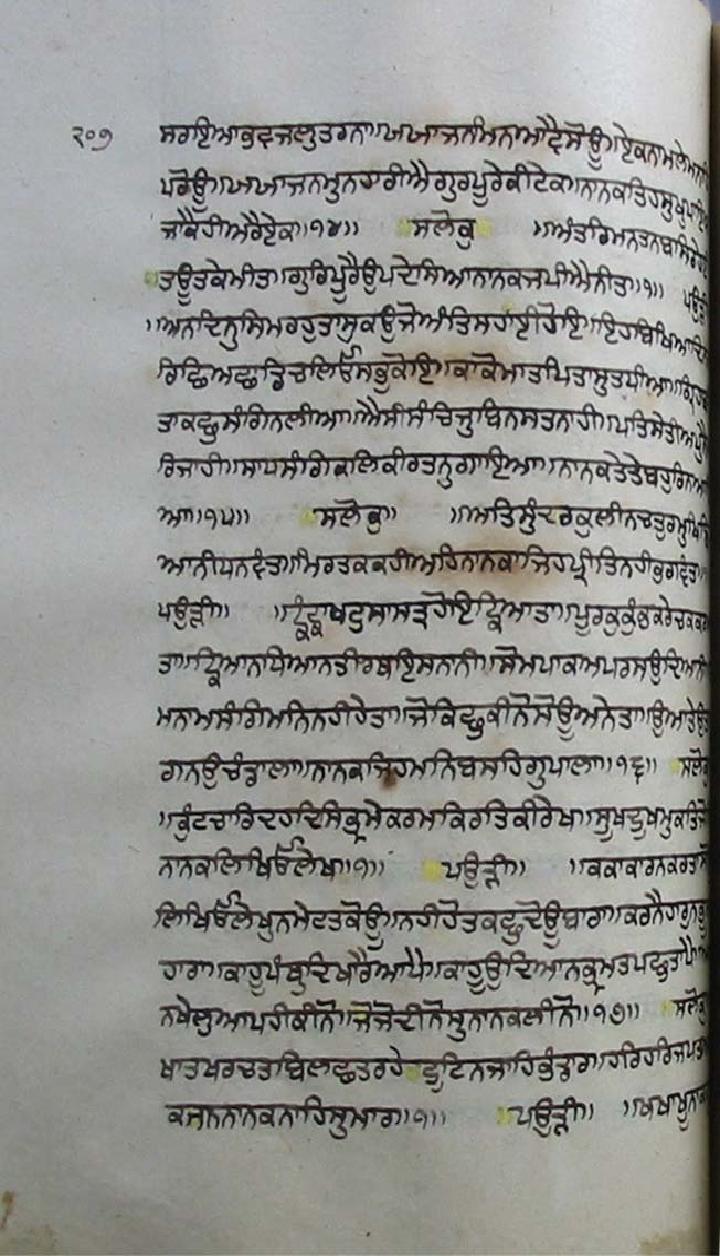 ੨੦੭ ਸਰਾਇਆਭਵਜਲੁਤਰਨਾ॥ਯਯਾਜਨਮਿਨਆਵੈਸੋਊ॥ਏਕਨਾਮਲੇ
ਪਰੋਊ॥ਯਯਾਜਨਮੁਨਹਾਰੀਐਗੁਰਪੂਰੇਕੀਟੇਕ॥ਨਾਨਕਤਿਹਸੁਖੁਪਾਇ
ਜਾਕੈਹੀਅਰੈਏਕ॥੧੪॥ ਸਲੋਕੁ ॥ਅੰਤਰਿਮਨਤਨਬਸਿ
ਤਊਤਕੇਮੀਤਾ॥ਗੁਰਿਪੂਰੈਉਪਦੇਸਿਆਨਾਨਕਜਪੀਐਨੀਤਾ॥੧॥ ਪਉੜੀ
॥ਅਨਦਿਨੁਸਿਮਰਹੁਤਾਸੁਕਉਜੋਅੰਤਿਸਹਾਈਹੋਇ॥ਇਹਬਿਖਿਆਦਿ
ਰਿਛਿਅਛਾਡਿਚਲਿਓਸਭੁਕੋਇ॥ਕਾਕੋਮਾਤਪਿਤਾਸੁਤਧੀਆ॥ਗ੍ਰਿਹ
ਤਾਕਛੁਸੰਗਿਨਲੀਆ॥ਐਸੀਸੰਚਿਜੁਬਿਨਸਤਨਾਹੀ॥ਪਤਿਸੇਤੀਅਪੁਨੈ
ਰਿਜਾਹੀ॥ਸਾਧਸੰਗਿਕਲਿਕੀਰਤਨੁਗਾਇਆ॥ਨਾਨਕਤੇਤੇਬਹੁਰਿਨਆ
ਆ॥੧੫॥ ਸਲੋਕੁ॥ ॥ਅਤਿਸੁੰਦਰਕੁਲੀਨਚਤੁਰਮੁਖਿ
ਆਨੀਧਨਵੰਤਾ॥ਮਿਰਤਕਕਹੀਅਹਿਨਾਨਕਾਜਿਹਪ੍ਰੀਤਿਨਹੀਭਗਵੰਤਾ
ਪਉੜੀ॥ ॥ਙੰਙਾਖਟੁਸਾਸਤ੍ਰਹੋਇਙਿਆਤਾ॥ਪੂਰਕੁਕੁੰਭਕਰੇਚਕਕਰ
ਤਾ॥ਙਿਆਨਧਿਆਨਤੀਰਥਇਸਨਾਨੀ॥ਸੋਮਪਾਕਅਪਰਸਉਦਿਆਨੀ
ਮਨਾਮਸੰਗਿਮਨਿਨਹੀਹੇਤਾ॥ਜੋਕਿਛੁਕੀਨੋਸੋਊਅਨੇਤਾ॥ਉਆਤੇਊਤ
ਗਨਉਚੰਡਾਲਾ॥ਨਾਨਕਜਿਹਮਨਿਬਸਹਿਗੁਪਾਲਾ॥੧੬॥ ਸਲੋਕੁ
॥ਕੁੰਟਚਾਰਿਦਹਦਿਸਿਭ੍ਰਮੇਕਰਮਕਿਰਤਿਕੀਰੇਖ॥ਸੂਖਦੂਖਮੁਕਤਿਜੋ
ਨਾਨਕਲਿਖਿਓਲੇਖ॥੧॥ ਪਉੜੀ॥ ॥ਕਕਾਕਾਰਨਕਰਤਾਸੋ
ਲਿਖਿਓਲੇਖੁਨਮੇਟਤਕੋਊ॥ਨਹੀਹੋਤਕਛੁਦੋਊਬਾਰਾ॥ਕਰਨੈਹਾਰੁਨਭੂ
ਹਾਰਾ॥ਕਾਹੂਪੰਥੁਦਿਖਾਰੈਆਪੈ॥ਕਾਹੂਉਦਿਆਨਭ੍ਰਮਤਪਛੁਤਾਪੈ॥
ਨਖੇਲੁਆਪਹੀਕੀਨੋ॥ਜੋਜੋਦੀਨੋਸੁਨਾਨਕਲੀਨੋ॥੧੭॥ ਸਲੋਕੁ
ਖਾਤਖਰਚਤਬਿਲਛਤਰਹੇਟੂਟਿਨਜਾਹਿਭੰਡਾਰ॥ਹਰਿਹਰਿਜਪਤ
ਕਜਨਨਾਨਕਨਾਹਿਸੁਮਾਰ॥੧॥ ਪਉੜੀ॥ ॥ਖਖਾਖੂਨਾ